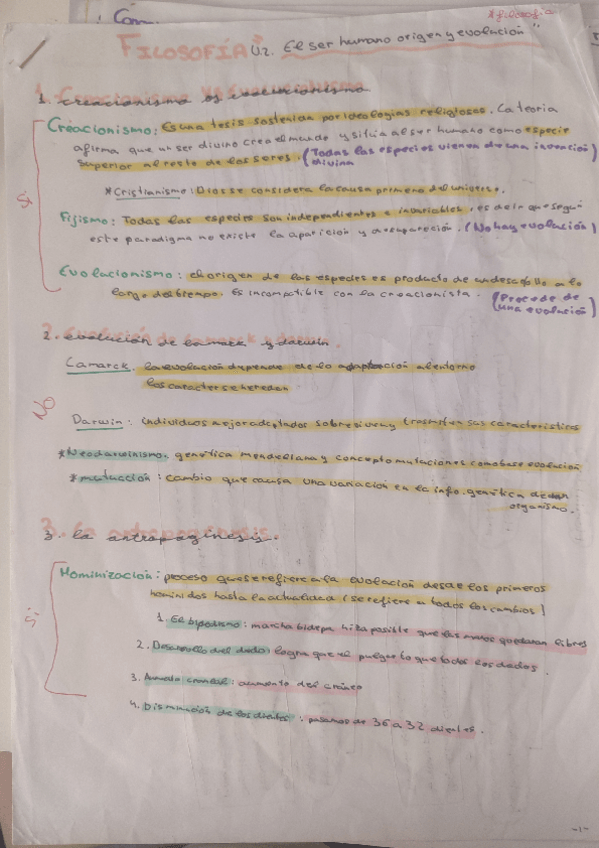 *filosofía
FILOSOFÍA U2. El ser humano origen y evolución"
1. Creacionismo vs evolucionismo
Creacionismo: Es una tesis sostenida por ideologías religiosas. La teoría
afirma que un ser divino crea el mundo y sitúa al ser humano como especie
superior al resto de los seres. (Todas las especies vienen de una invención
divina
*Cristianismo: Dios se considera la causa primera del universo.
Sí
Fijismo: Todas las especies son independientes e invariables, es decir que según
este paradigma no existe la aparición y desaparición. (No hay evolución)
Evolucionismo: el origen de las especies es producto de un desarrollo a lo
largo del tiempo. Es incompatible con la creacionista. (Procede de
una evolución)
2. evolución de Lamarck y darwin
Lamarck. la evolución depende de la adaptación al entorno
los caracter se heredan
NO
Darwin: individuos mejor adaptados sobreviven y trasmiten sus características
*Neodarwinismo. genética mendeliana y concepto mutaciones como base evolución
*mutación: cambio que causa una variación en la info. genética de un
organismo.
3. la antropogénesis.
Hominización: proceso que se refiere a la evolución desde los primeros
homínidos hasta la actualidad (se refiere a todos los cambios)
sí
1. El bipedismo: marcha bípeda hizo posible que las manos quedaran libres
2. Desarrollo del dedo: logra que el pulgar toque todos los dedos.
3. craneal: aumento del cráneo
4. Disminución de los dientes: pasamos de 36 a 32
-1-